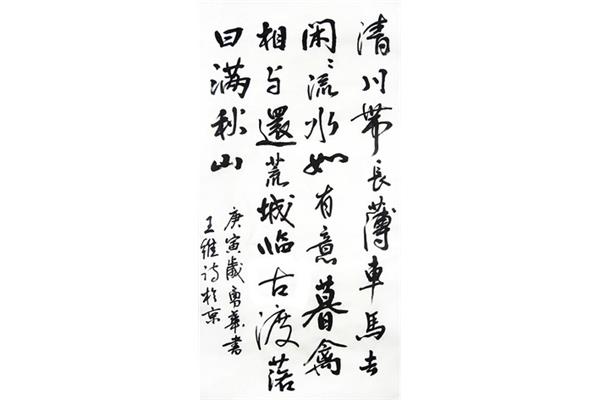 清川帶長薄車馬去
闲〻流水如有意暮禽
相与還荒城临古渡落
日满秋山
庚寅歲勇華書
王維詩於京